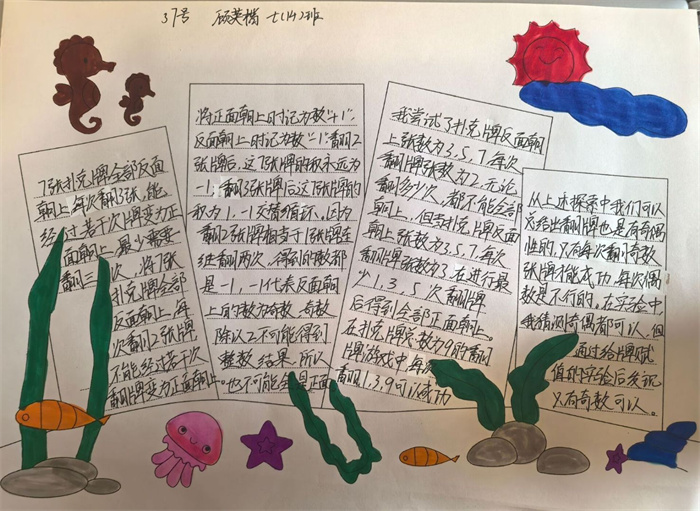 37号 顾英楷 七(14)班
7张扑克牌全部反面
朝上,每次翻3张,能
经过若干次牌变为正
面朝上,最少需要
翻三次,将7张
扑克牌全部
反面朝上,每
次翻2张牌
不能经过若干次
翻牌变为正面朝上。
将正面朝上时记为数"+1",
反面朝上时记为数"-1"翻2
张牌后,这7张牌的积永远为
-1,翻3张牌后这7张牌的
积为1.-1交替循环,因为
翻2张牌相当于1张牌在
继翻两次,得到的数都
是-1,-1代表反面朝
上的数为奇数,奇数
除以2不可能得到
整数结果,所以
也不可能全是正面
我尝试了扑克牌反面朝
上张数为3,5,7.每次
翻牌张数为2,无论
翻多少次,都不能全部
朝上,但当扑克牌反面
朝上张数为3,5,7,每次
翻牌张数为3,在进行最
少1,3,5次翻牌
后得到全部正面朝上。
在扑克牌总数为9的翻
牌游戏中,每次
翻1.3.9可以成功
从上述探索中我们可以
总结出翻牌也是有奇偶
性的,只有每次翻奇数
张牌才能成功,每次偶
数是不行的,在实验中,
我猜测奇偶都可以,但
通过给牌赋
值的实验后发现
只有奇数可以。